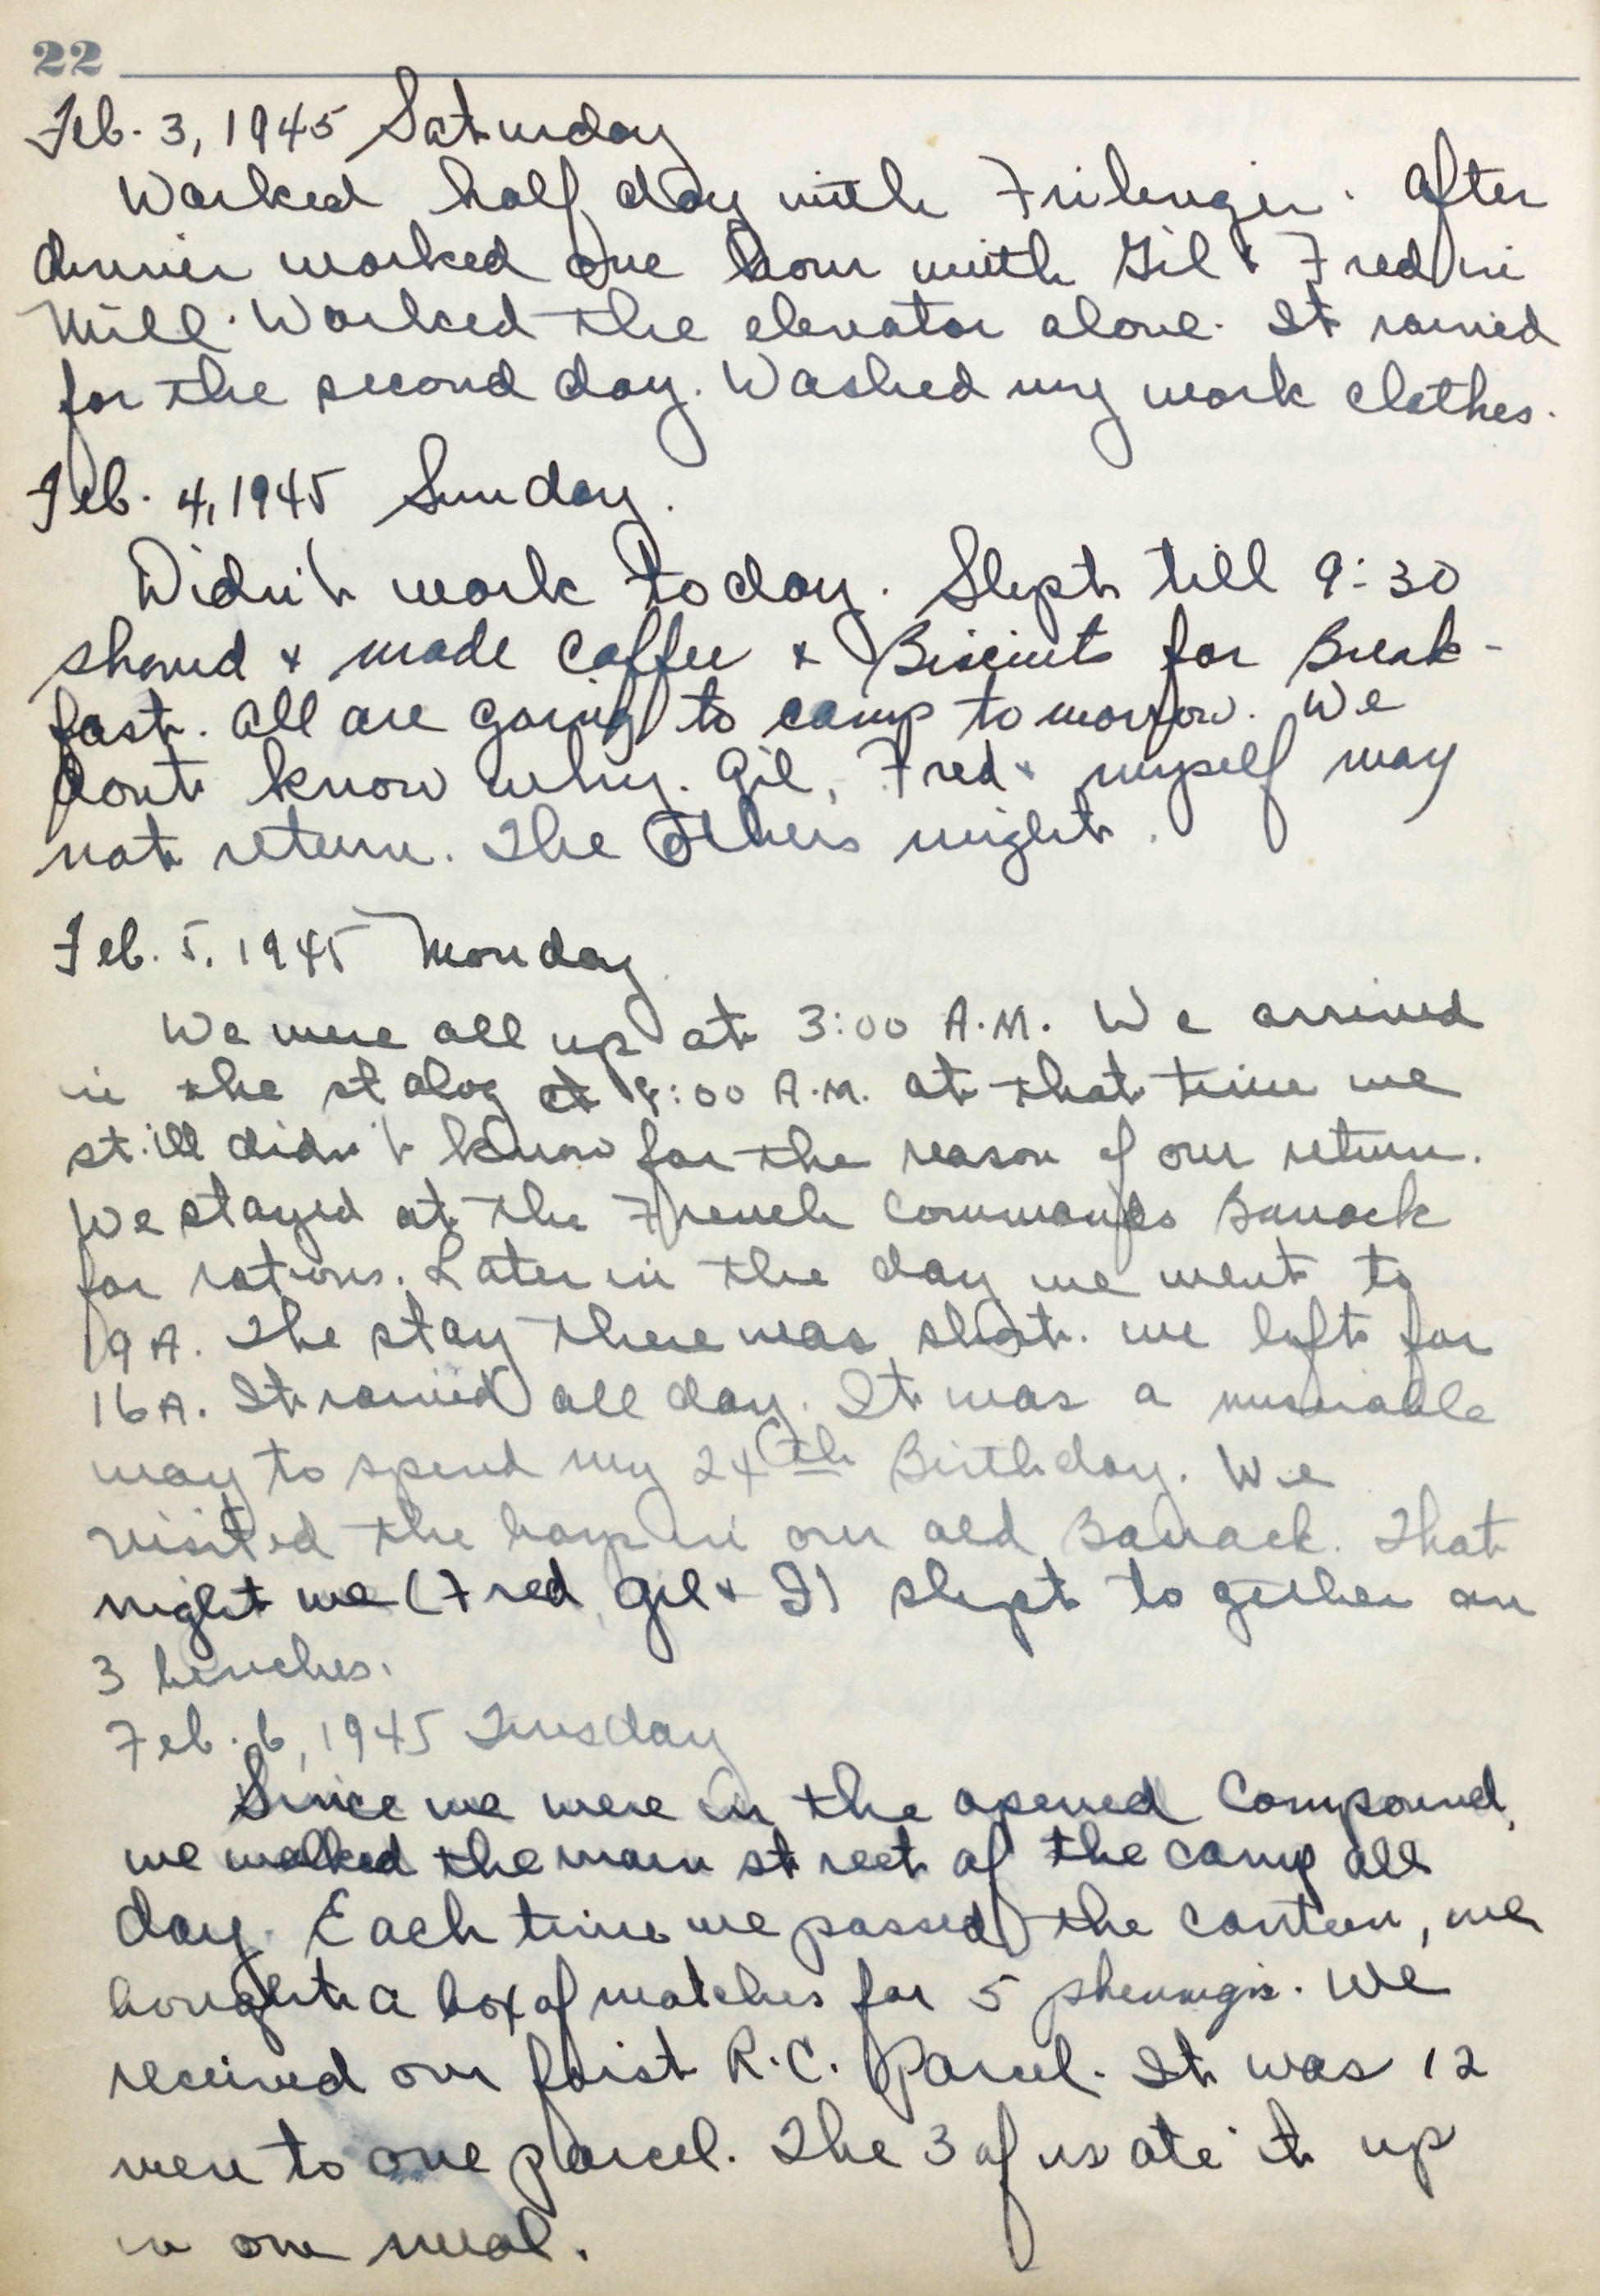 22
Feb. 3, 1945 Saturday
Worked half day with Frilenger. After
dinner worked one hour with Gil & Fred in
Mill. Worked the elevator alone. It rained
for the second day. Washed my work clothes.
Feb. 4, 1945 Sunday.
Didn't work today. Slept till 9:30
shaved & made coffee & Biscuits for Break-
fast. All are going to camp tomorrow. We
dont know why. Gil, Fred & myself may
not return. The others might.
Feb. 5, 1945 Monday.
We were all up at 3:00 A.M. We arrived
in the stalag at 8:00 A.M. at that time we
still didn't know for the reason of our return.
We stayed at the French Commandos Barrack
for rations. Later in the day we went to
19A. The stay there was short. we left for
16A. It rained all day. It was a miserable
way to spend my 24th Birthday. We
visited the boys in our old Barrack. That
night we (Fred, Gil & I) slept together on
3 benches.
Feb. 6, 1945 Tuesday
Since we were in the opened Compound,
we walked the main street of the camp all
day. Each time we passed the canteen, we
bought a box of matches for 5 phennigs. We
received our foist R.C. Parcel. It was 12
men to one parcel. The 3 of us ate it up
in one meal.